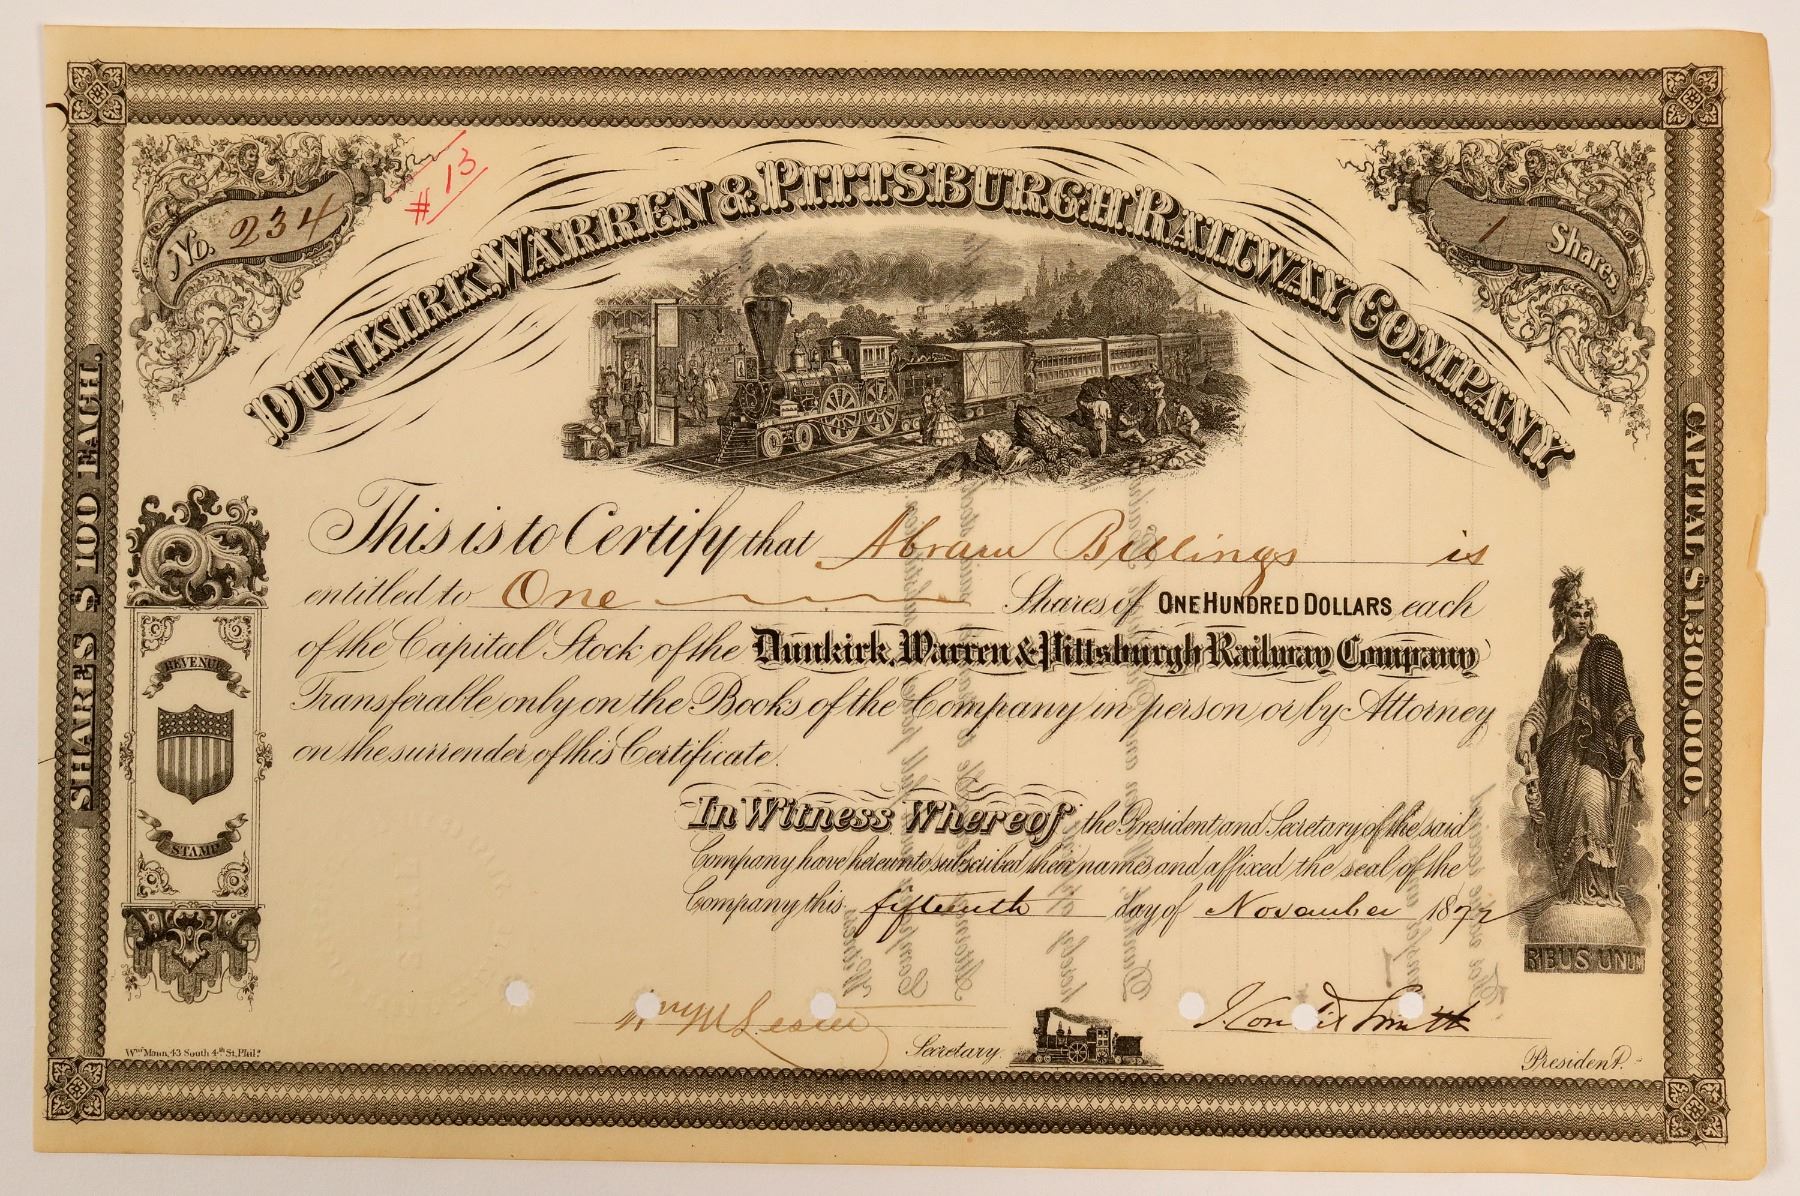 No. 234
# 13
1 Shares
DUNKIRK, WARREN & PITTSBURGH RAILWAY COMPANY.
SHARES $100 EACH.
CAPITAL $1,300,000.
This is to Certify that Abram Billings is
entitled to One Shares of ONE HUNDRED DOLLARS each
of the Capital Stock of the Dunkirk, Warren & Pittsburgh Railway Company
Transferable only on the Books of the Company in person or by Attorney
on the surrender of this Certificate.
REVENUE
STAMP
In Witness Whereof the President and Secretary of the said
Company have hereunto subscribed their names and affixed the seal of the
Company this fifteenth day of November 1872
RIBUS UNUM
Wm M Lester
Secretary.
J. Condit Smith
President.
Wm. Mann, 43 South 4th St, Phila.